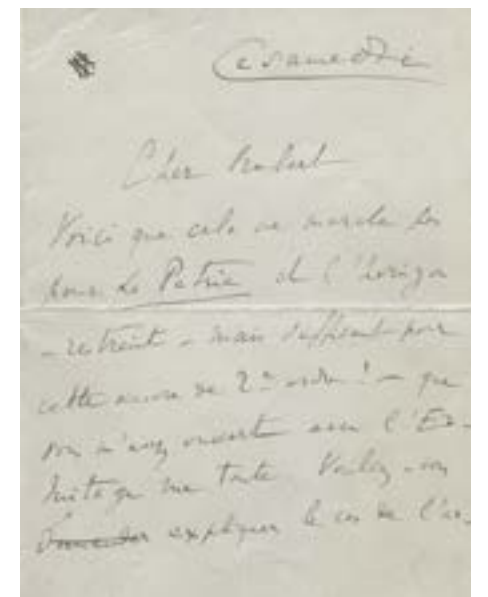 Ce samedi
Cher Robert
Voici que cela ne marche pas
pour La Patrie et l'horizon
- restreint - mais suffisant pour
cette œuvre de 2e ordre ! - que
vous m'avez ouvert avec l'Er-
mitage me tente. Voulez-vous
expliquer le cas de l'